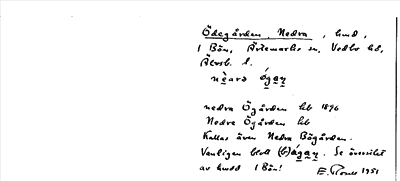 Ödegården, Nedra, hmd,
1 Bön, Ärtemarks sn, Vedbo hd,
Älvsb. l.
nèarə ǿgaṇ
nedra Ögården hb 1896
Nedre Ögården hb
Kallas även Nedra Bögården.
Vanligen blott (b)ǿgaṇ. Se översikt
av hmd 1 Bön! 1951